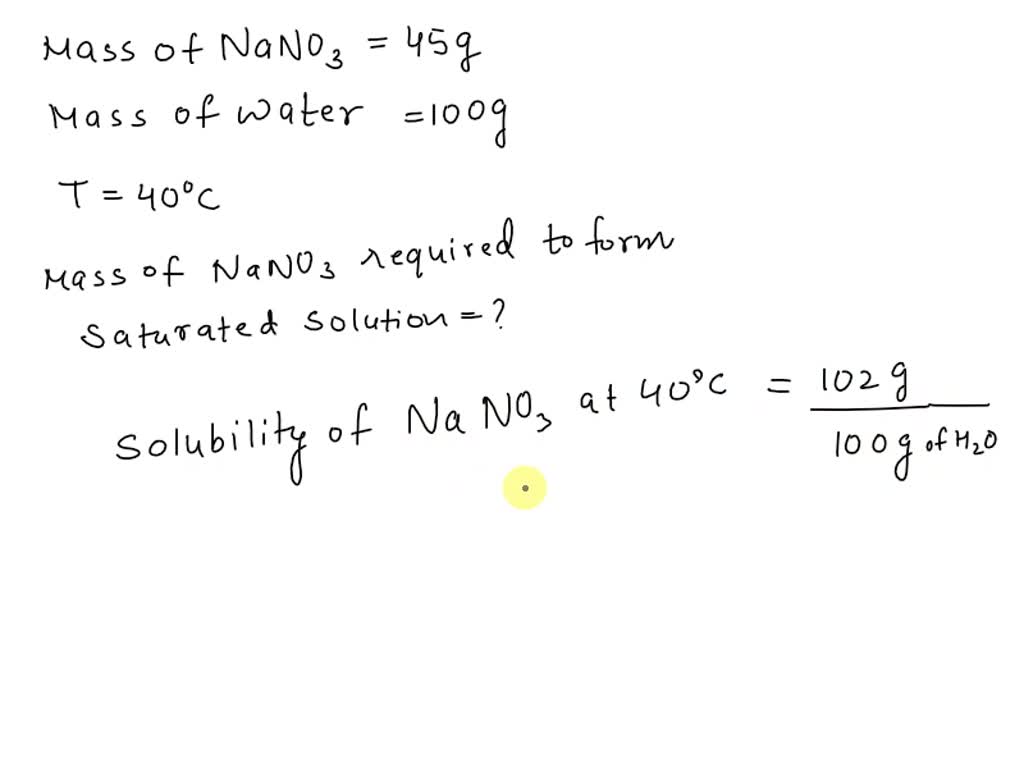 Mass of NaNO₃ = 45g
Mass of water = 100g
T = 40°C
Mass of NaNO₃ required to form
saturated solution = ?
Solubility of NaNO₃ at 40°C = 102 g
100g of H₂O